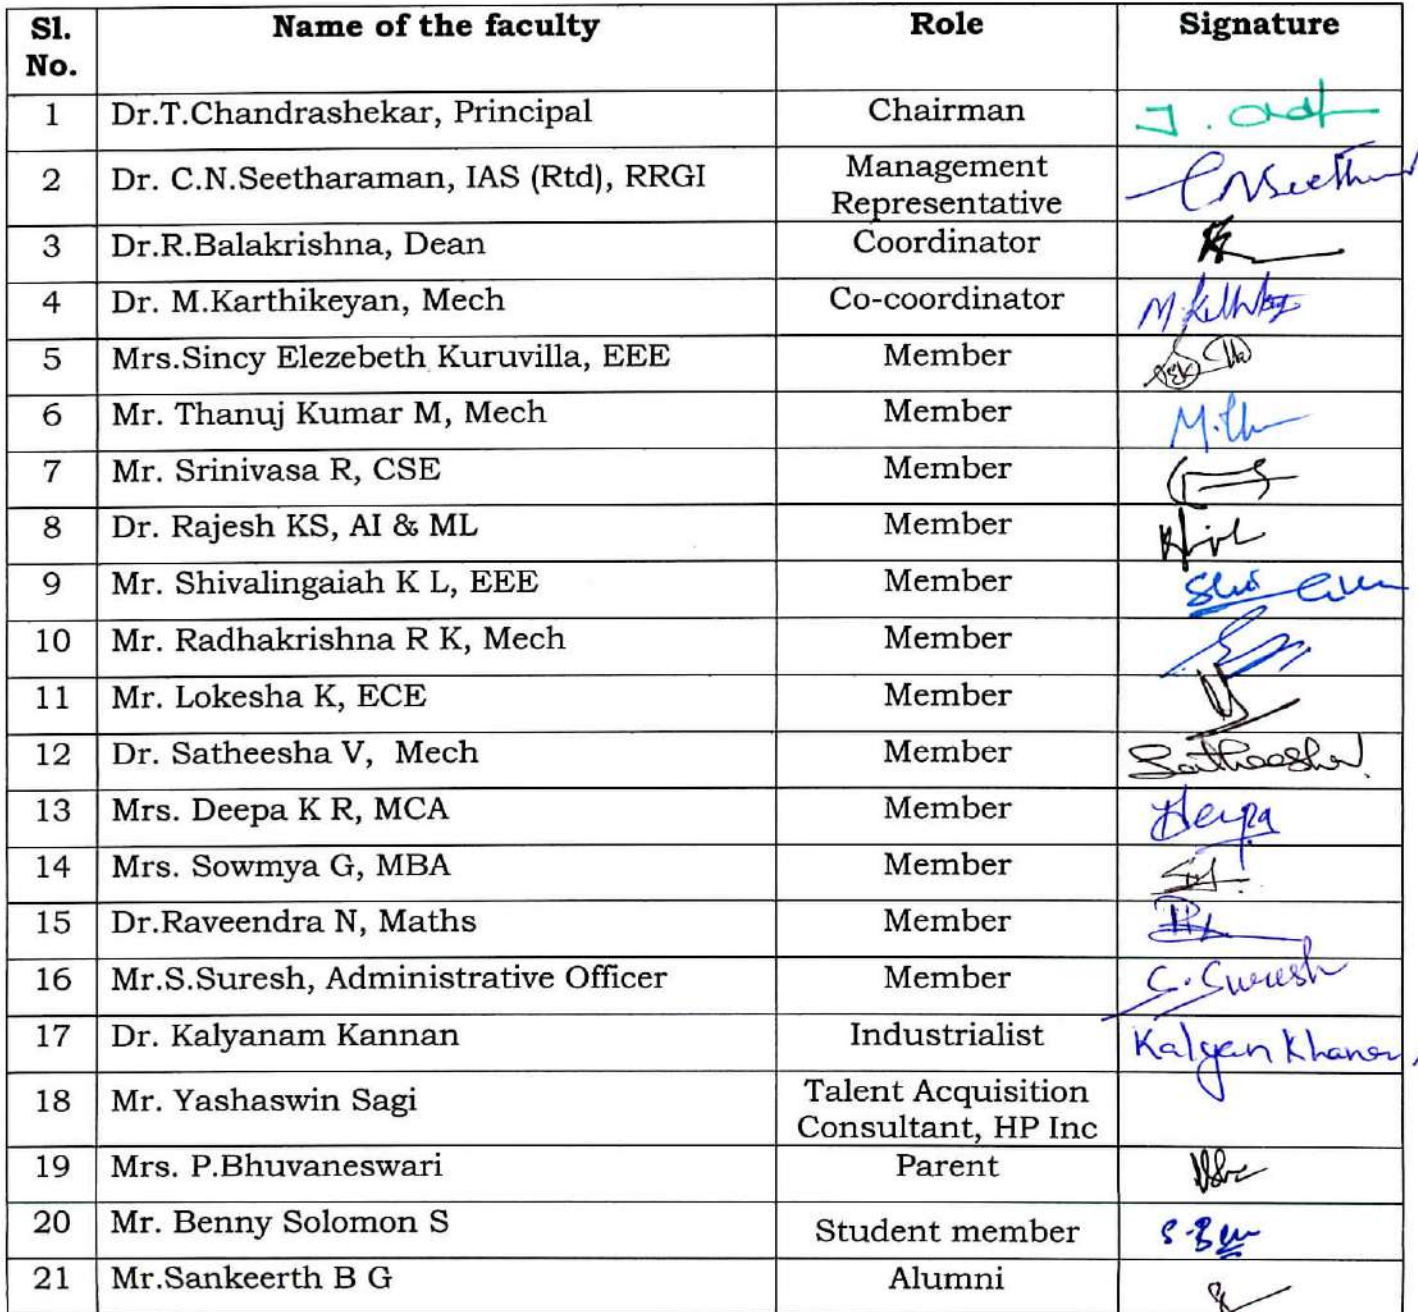 Sl. No. Name of the faculty Role Signature
1 Dr.T.Chandrashekar, Principal Chairman
2 Dr. C.N.Seetharaman, IAS (Rtd), RRGI Management Representative
3 Dr.R.Balakrishna, Dean Coordinator
4 Dr. M.Karthikeyan, Mech Co-coordinator
5 Mrs.Sincy Elezebeth Kuruvilla, EEE Member
6 Mr. Thanuj Kumar M, Mech Member
7 Mr. Srinivasa R, CSE Member
8 Dr. Rajesh KS, AI & ML Member
9 Mr. Shivalingaiah K L, EEE Member
10 Mr. Radhakrishna R K, Mech Member
11 Mr. Lokesha K, ECE Member
12 Dr. Satheesha V, Mech Member Satheesha V.
13 Mrs. Deepa K R, MCA Member Deepa
14 Mrs. Sowmya G, MBA Member
15 Dr.Raveendra N, Maths Member
16 Mr.S.Suresh, Administrative Officer Member S. Suresh
17 Dr. Kalyanam Kannan Industrialist Kalyan
18 Mr. Yashaswin Sagi Talent Acquisition Consultant, HP Inc
19 Mrs. P.Bhuvaneswari Parent
20 Mr. Benny Solomon S Student member
21 Mr.Sankeerth B G Alumni